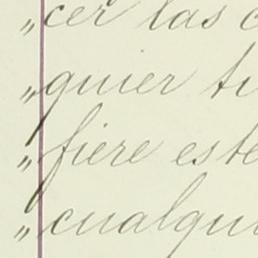 „cer las
„quier ti
„fiere este
„cualqui